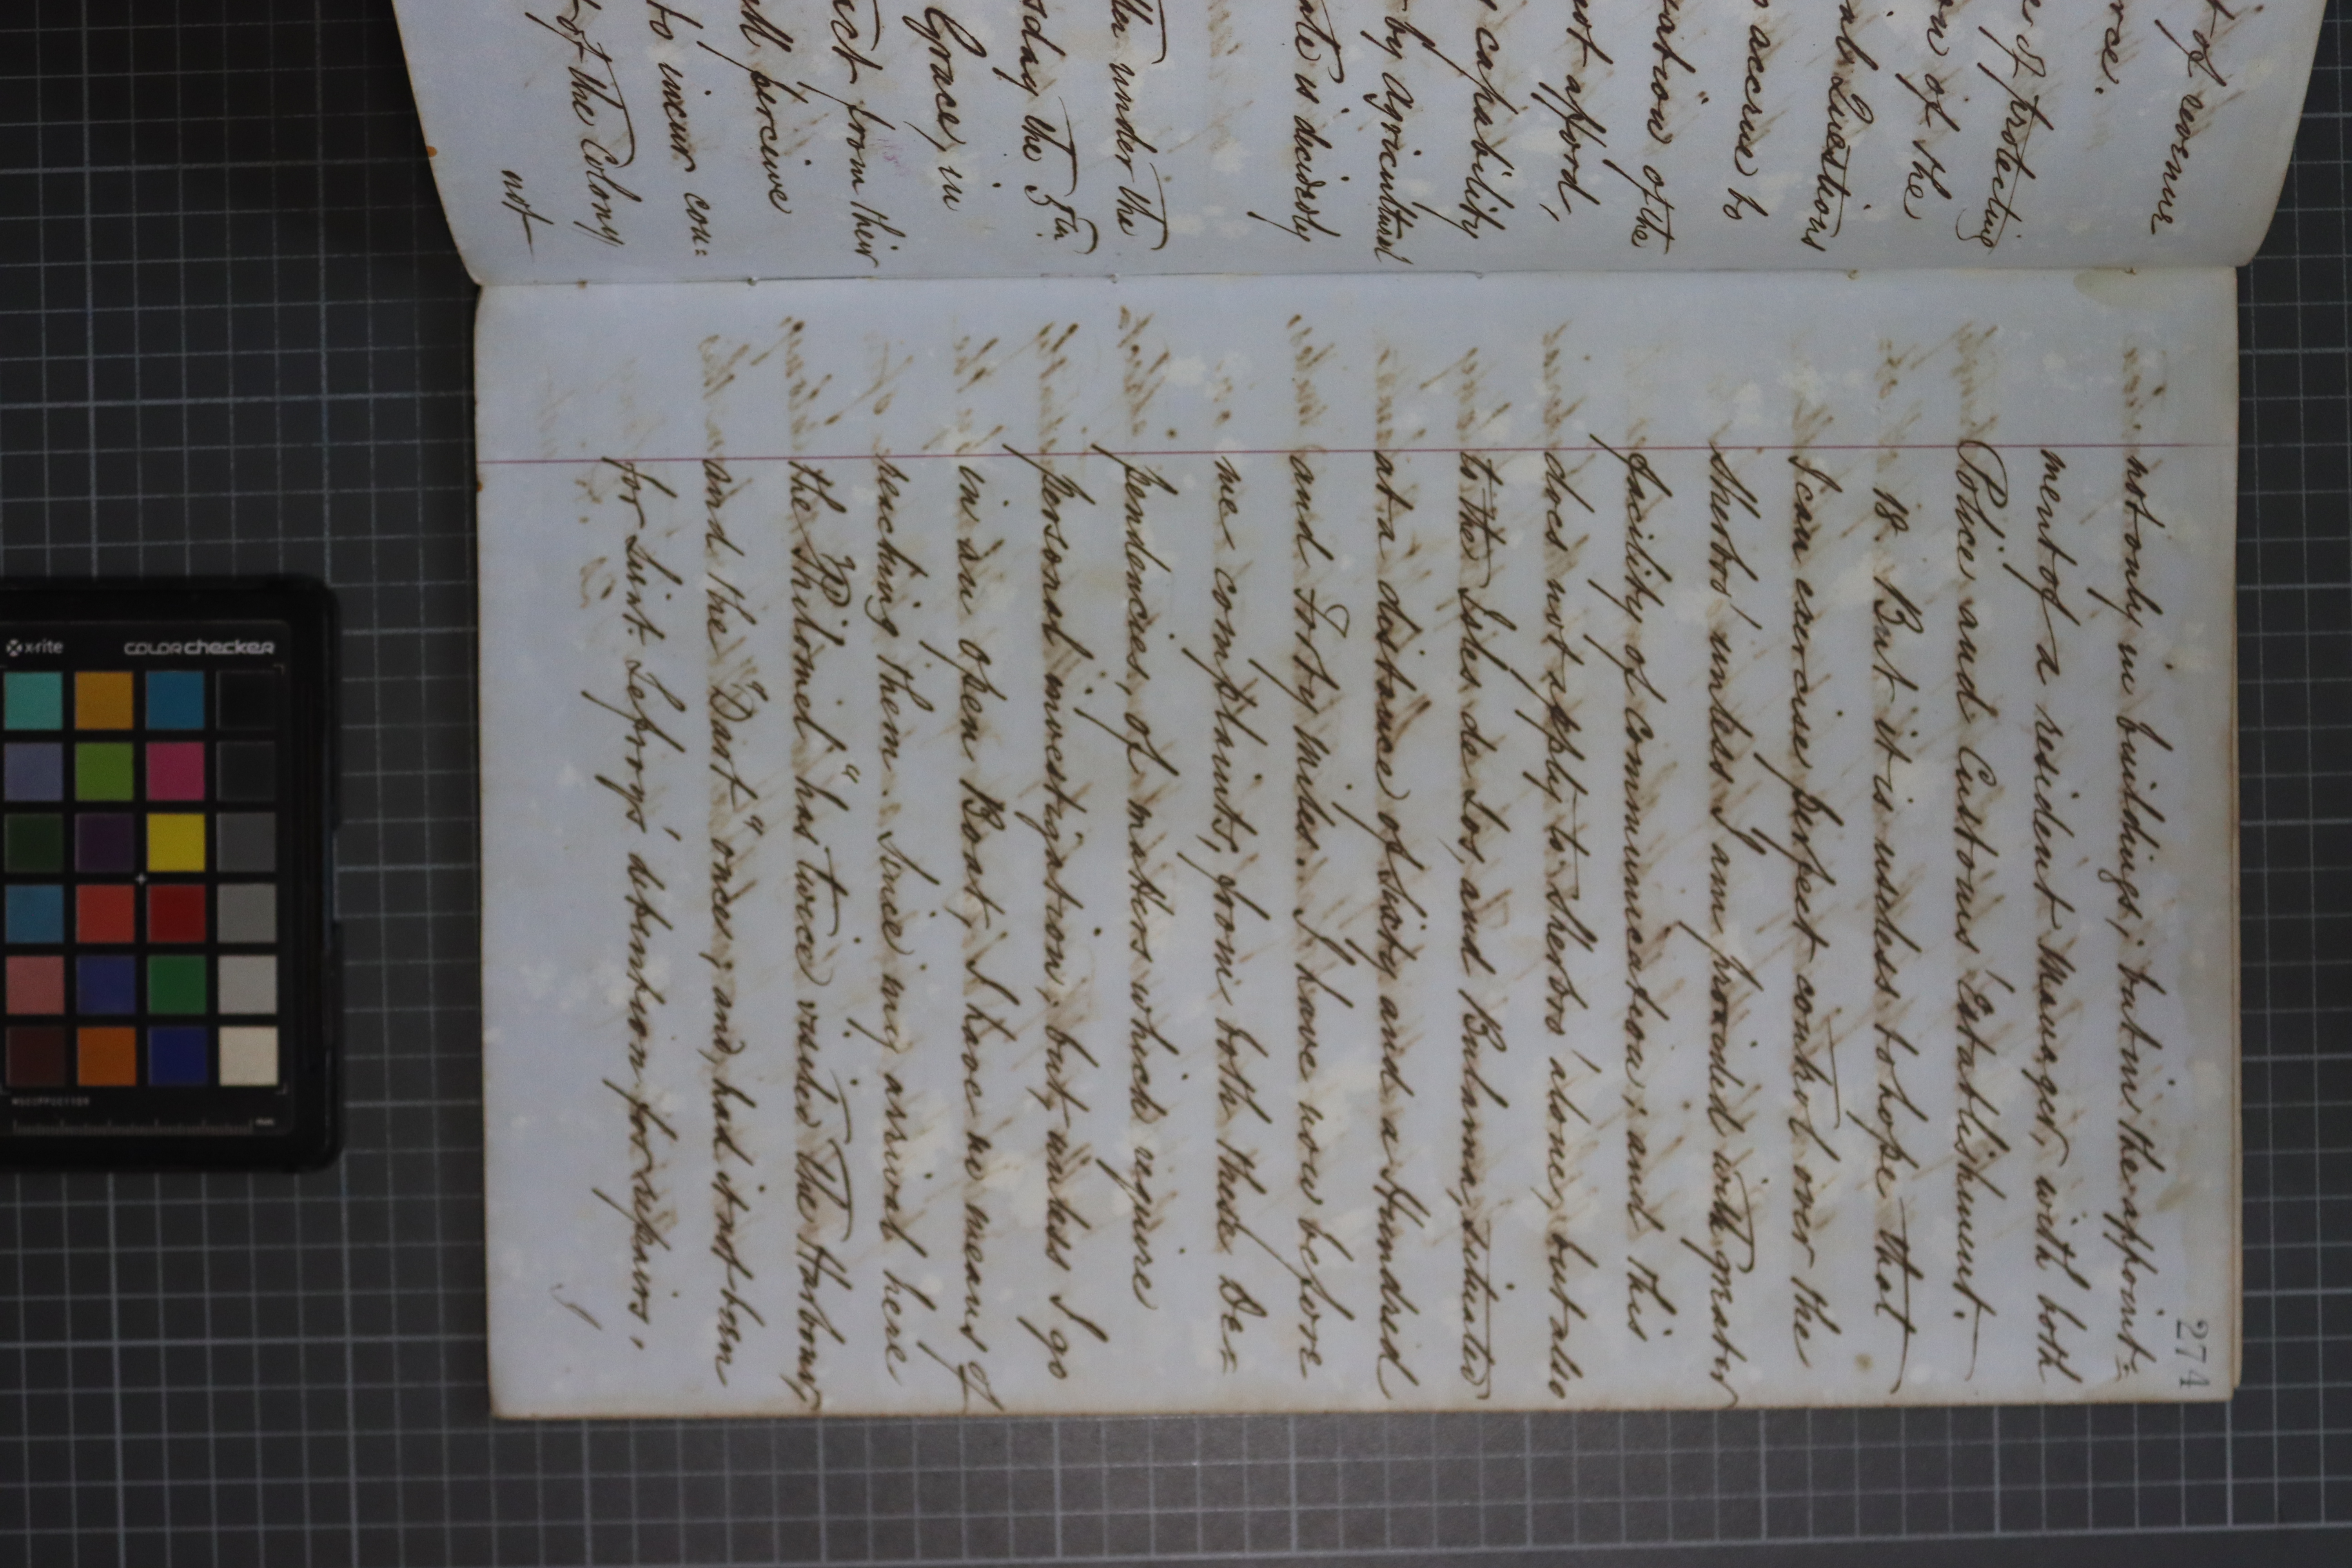 t of revenue
rce.
e of protecting
ow of the
al Questions
accrue to
uation" of the
not afford,
capability
by Agricultural
ate is decidedly
tter under the
sday the 5th
Grace, in
act from their
ll perceive
to incur con=
t of the Colony
not
274
not only in buildings; but in the appoint=
ment of a resident Manager, with both
Police and Customs' Establishment.
18. But it is useless to hope that
I can exercise perfect control over the
Sherbro' unless I am provided with greater
facility of communication; and this
does not apply to Sherbro' alone, but also
to the Isles de Los, and Bulama, situated
at a distance of Sixty and a Hundred
and Forty Miles. I have now before
me complaints, from both these De=
pendencies, of matters which require
personal investigation; but, unless I go
in an open Boat, I have no means of
reaching them. Since my arrival here
the "Philomel" has twice visited the Harbour,
and the "Dart" once; and, had it not been
for Lieut. Lefroy's detention for repairs,
I
x-rite
colorchecker